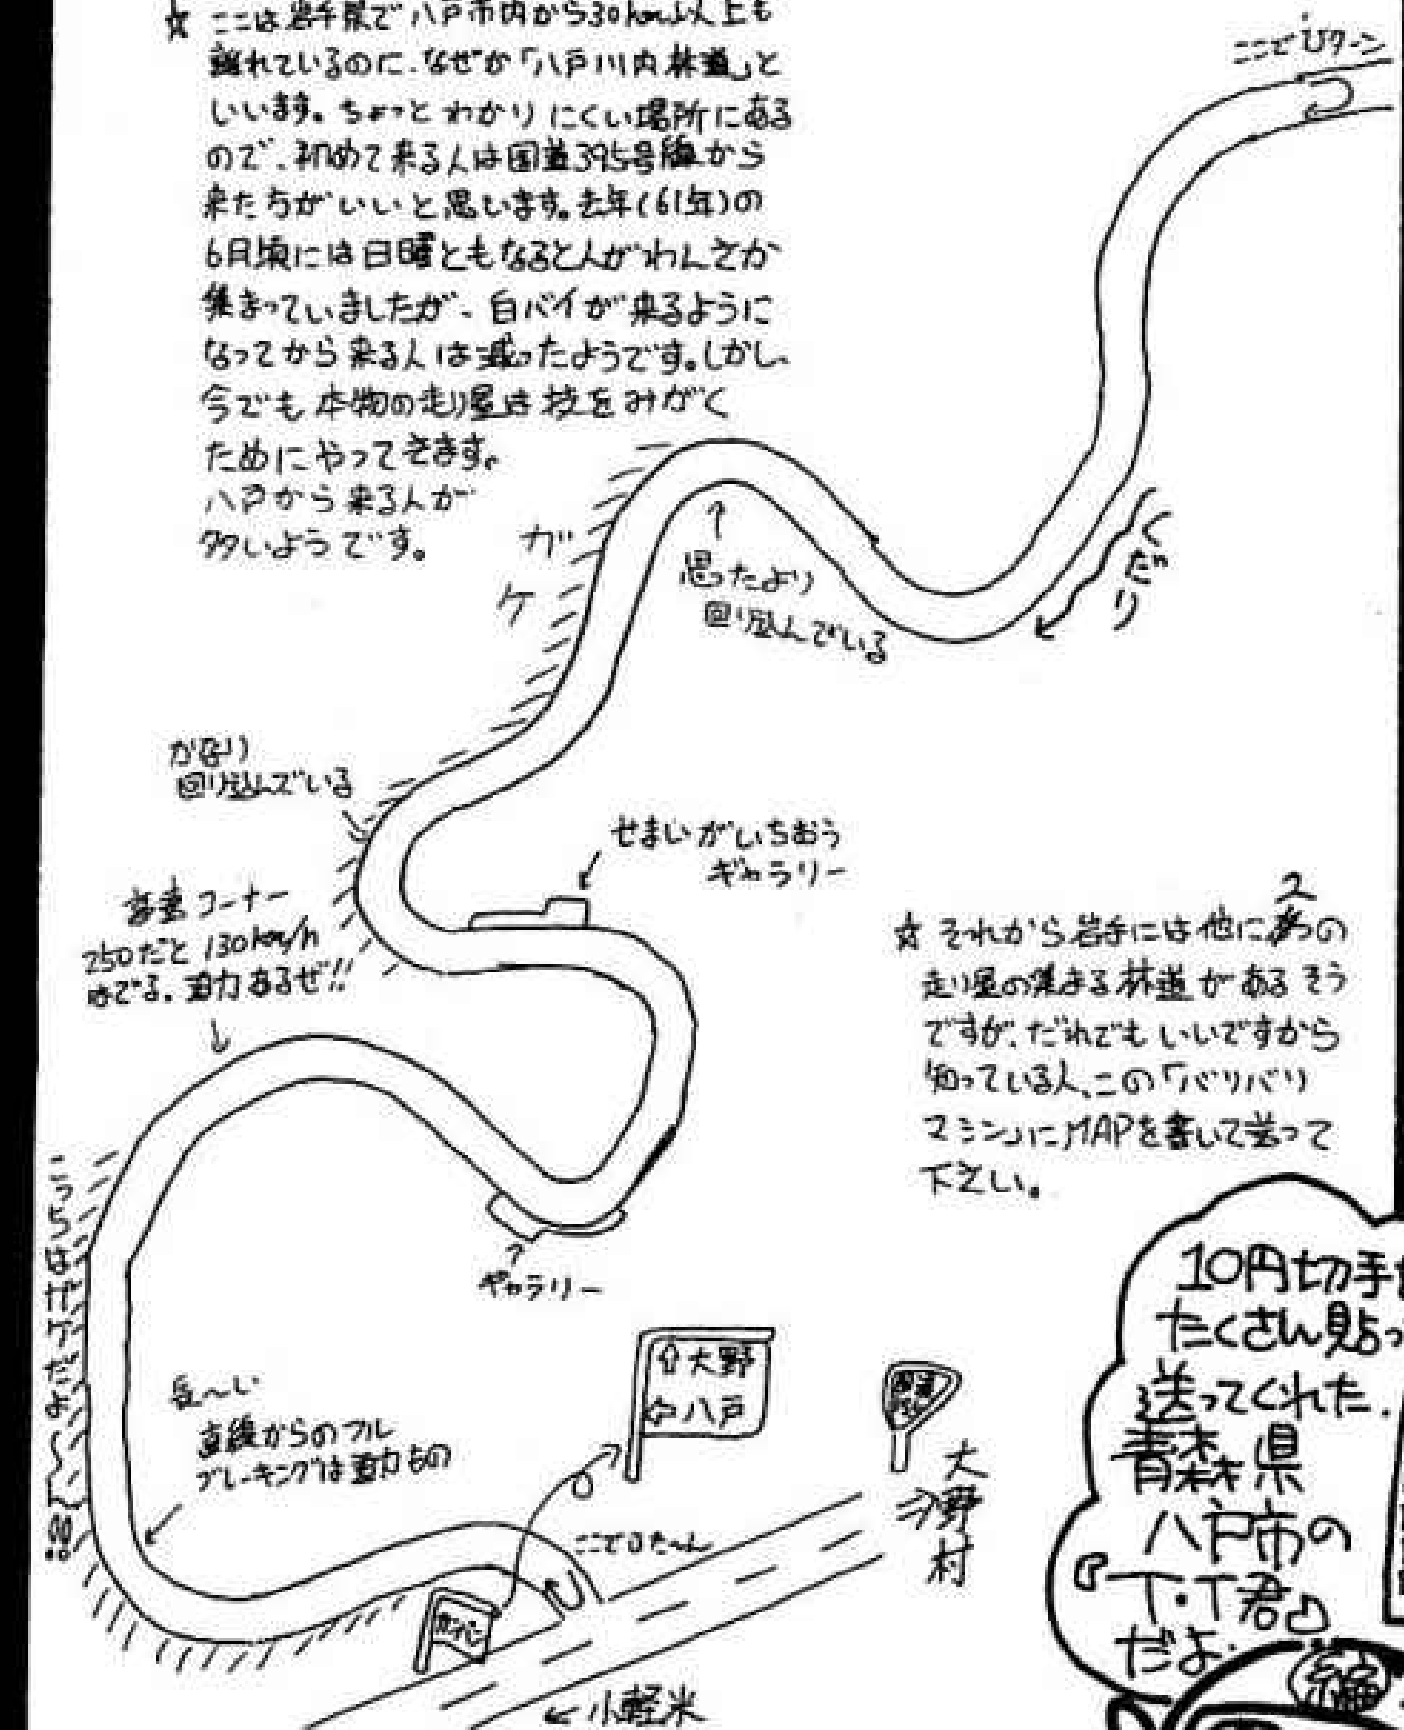 ☆ ここは岩手県で八戸市内から30km以上も
離れているのに、なぜか「八戸川内林道」と
いいます。ちょっとわかりにくい場所にある
ので、初めて来る人は国道395号線から
来たらがいいと思います。去年(61年)の
6月頃には日曜ともなると人がわんさか
集まっていましたが、白バイが来るように
なってから来る人は減ったようです。しかし、
今でも本物の走り屋は技をみがく
ためにやってきます。
八戸から来る人が
多いようです。
ここでUターン
くだり
ガケ
思ったより
回り込んでいる
かなり
回り込んでいる
せまいがいちおう
ギャラリー
高速コーナー
250だと130km/h
はでる。迫力あるぜ!!
☆ それから岩手には他に2つの
走り屋の集まる林道があるそう
ですが、だれでもいいですから
知っている人、この「バリバリ
マシン」にMAPを書いて送って
下さい。
ギャラリー
こっちはガケだよ〜ん
長〜い
直線からのフル
ブレーキングは迫力もの
⇧大野
⇦八戸
ここでUた〜ん
カンバン
⇒大野村
←小軽米
10円切手
たくさん貼っ
送ってくれた。
青森県
八戸市の
『T・T君』
だよ
編